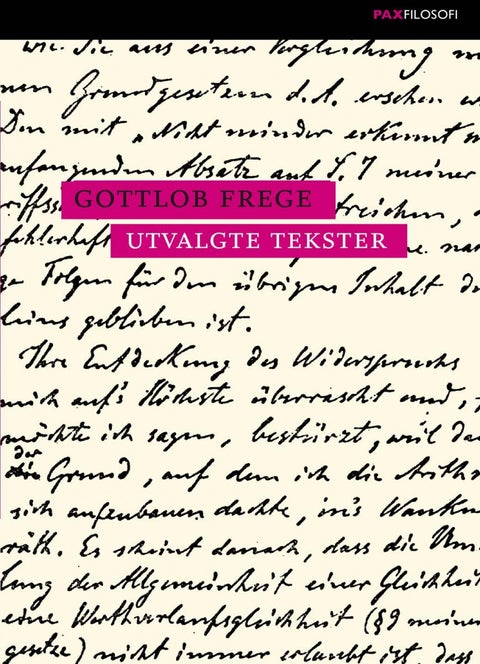 PAXFILOSOFI
wie Sie aus einer Vergleichung m
nen Grundgesetzen d. A. ersehen w
Den mit „Nicht minder erkennt m
anfangenden Absatz auf S. 7 meiner
riffss
GOTTLOB FREGE
treichen,
fehlerhaft
UTVALGTE TEKSTER
e. na
ge Folgen für den übrigen Inhalt d
leins geblieben ist.
Ihre Entdeckung des Widerspruchs
mich auf's Höchste überrascht und,
möchte ich sagen, bestürzt, weil da
der
Grund, auf dem ich die Arith
sich aufzubauen dachte, in's Wanken
räth. Es scheint danach, dass die Um
lung der Allgemeinheit einer Gleichheit
eine Werthverlaufsgleichheit (§9 meiner
gesetze) nicht immer erlaubt ist, dass